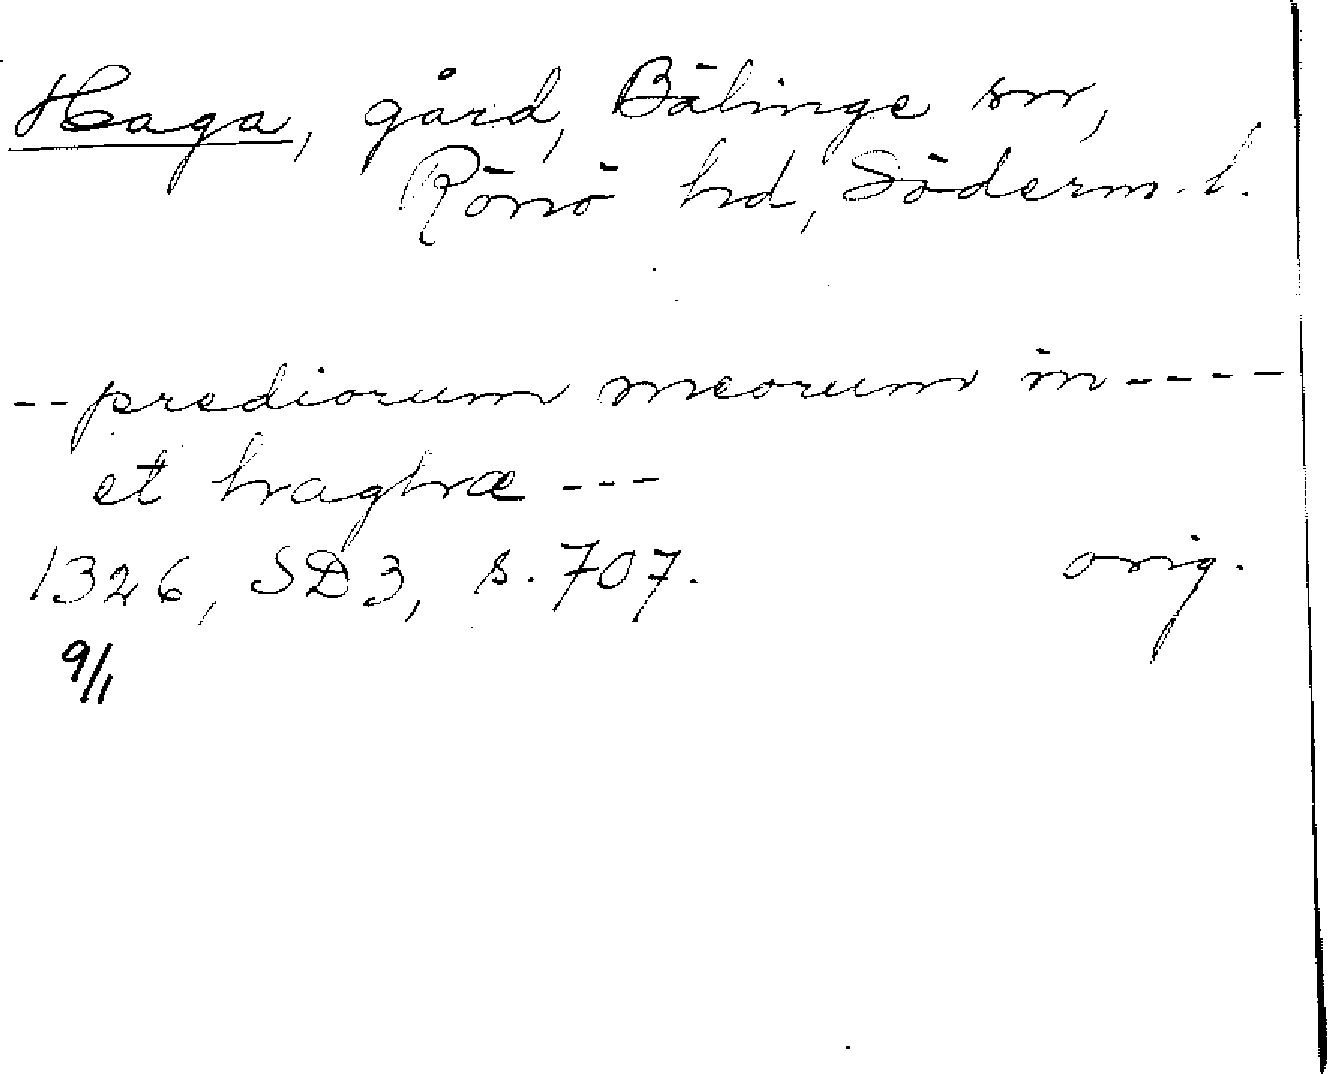 Haga, gård, Bälinge sn,
Rönö hd, Söderm. l.
-- prediorum meorum in ----
et haghæ ---
1326, SD3, s. 707. orig.
9/1